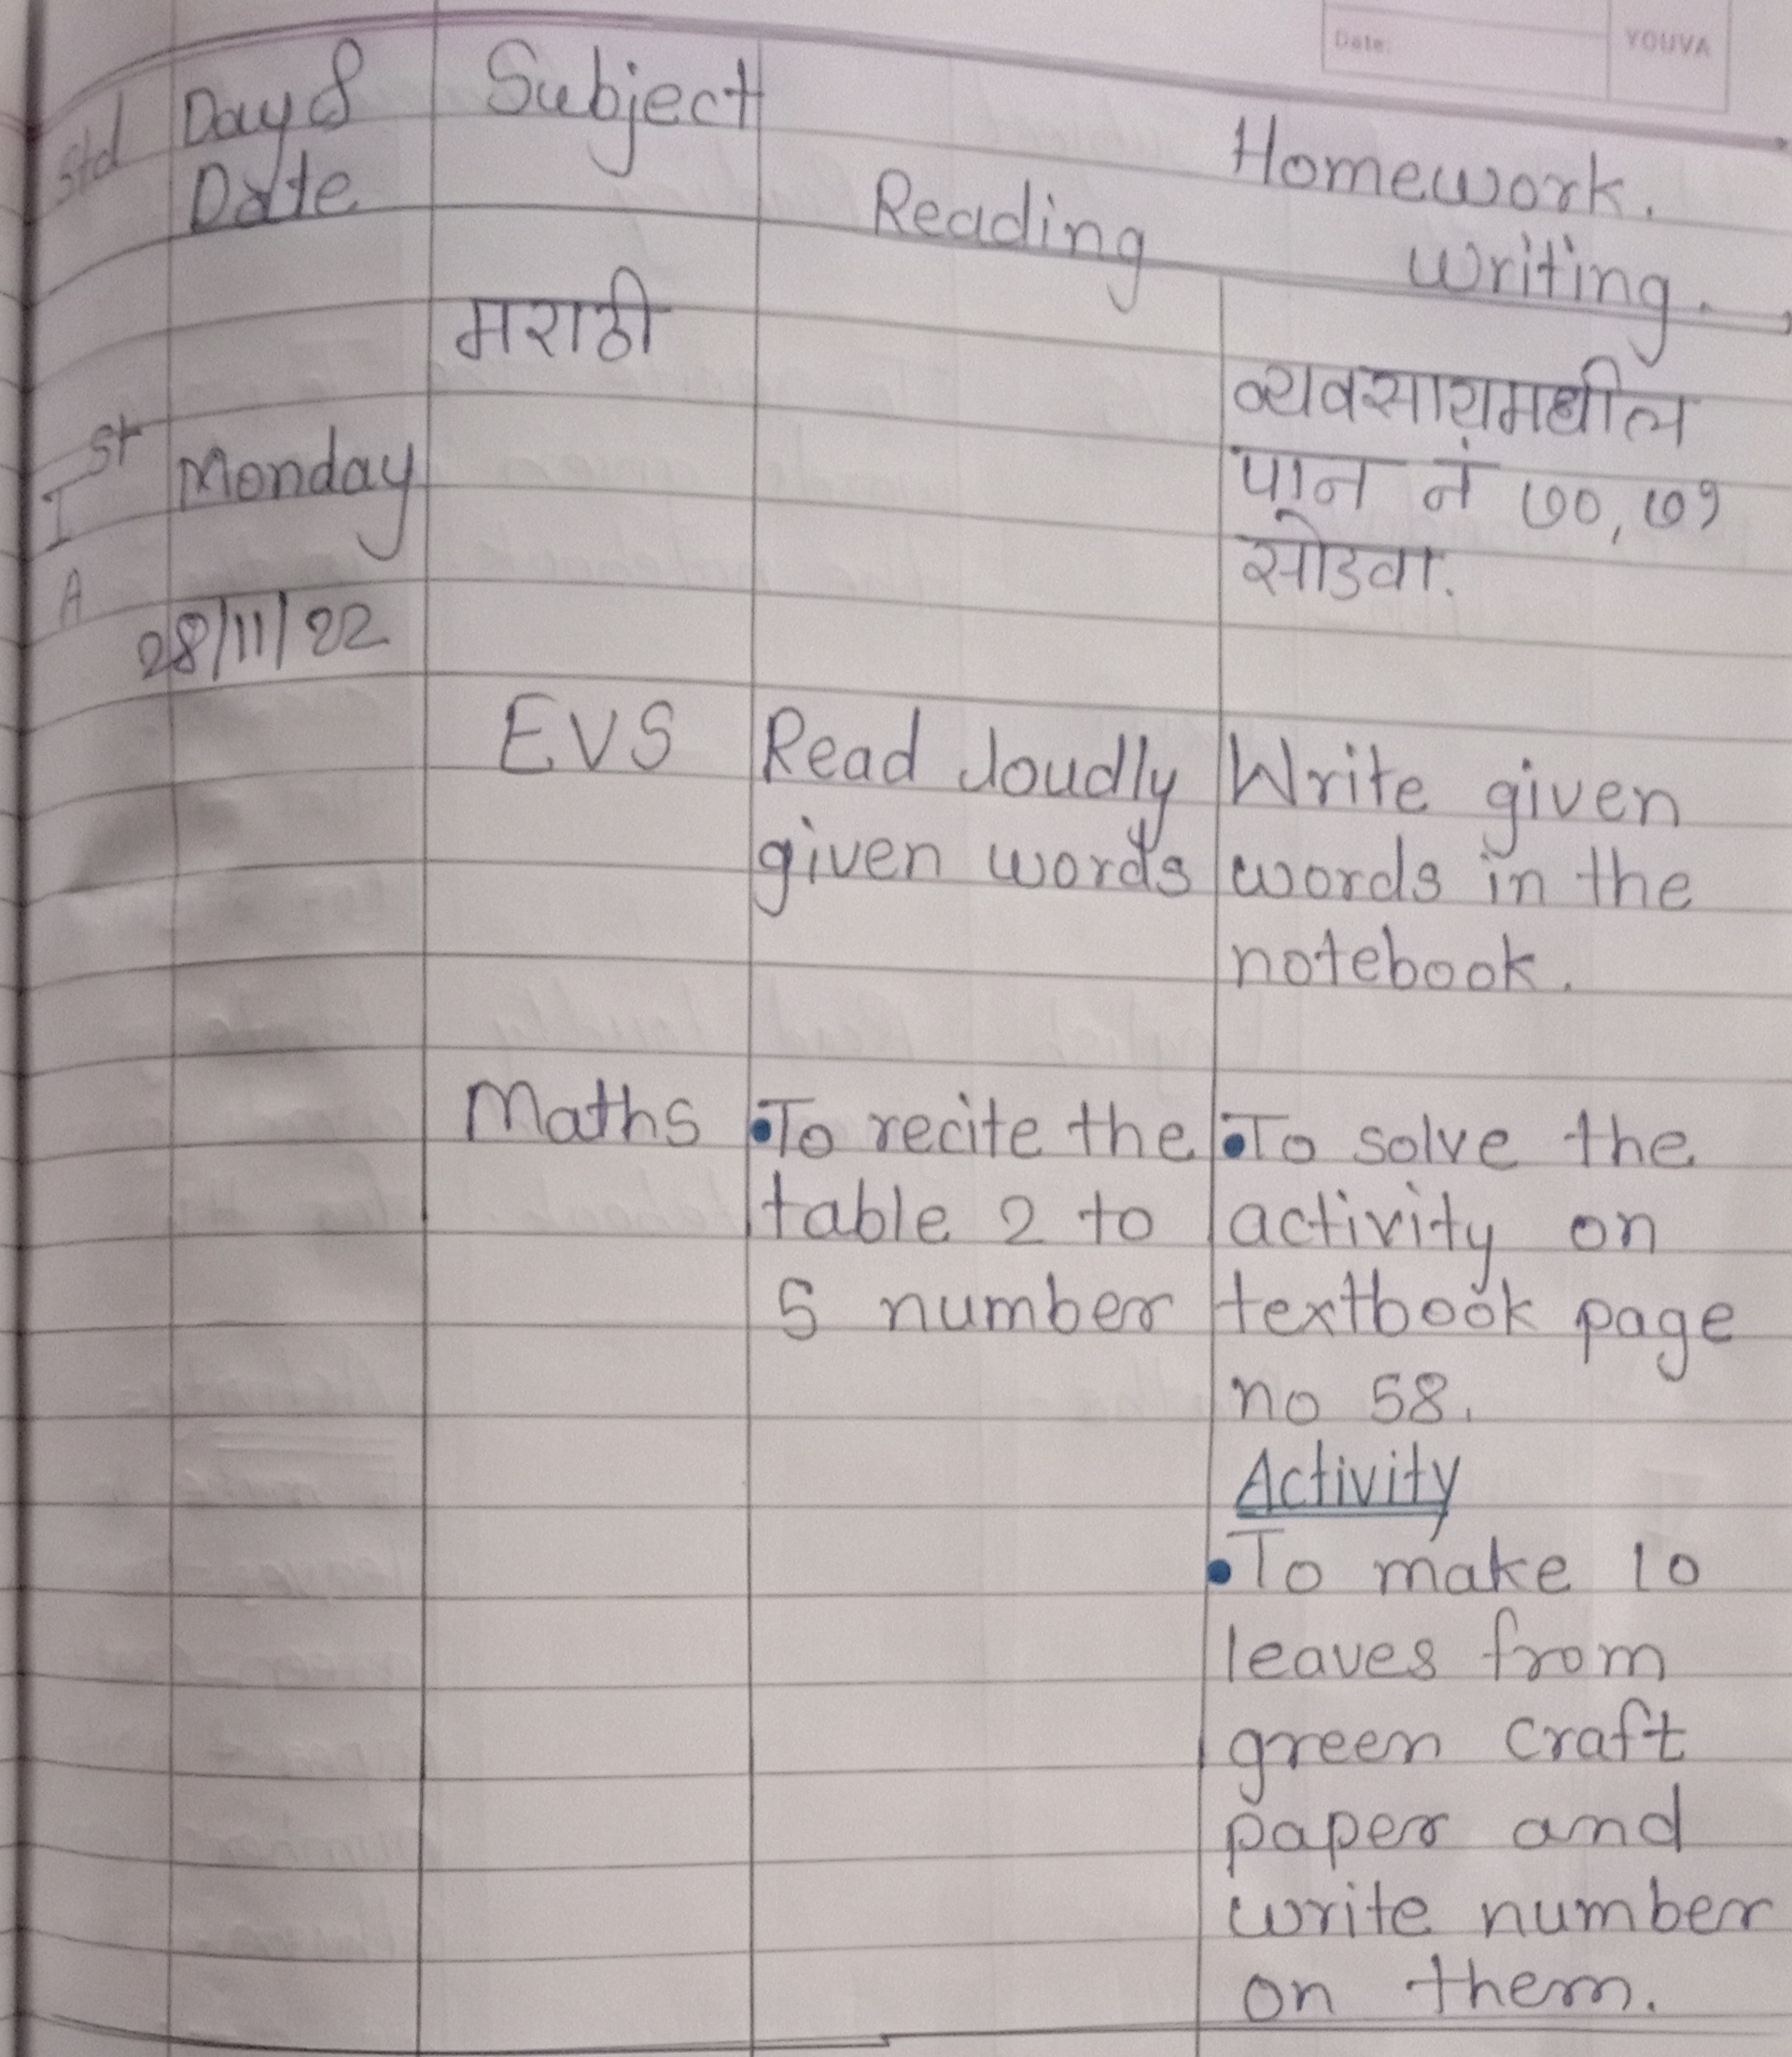 Date: YOUVA
Std Day & Subject Homework.
Date Reading writing.
मराठी व्यवसायमधील
Ist Monday पान नं ७०, ७१
A सोडवा.
28/11/22
EVS Read loudly Write given
given words words in the
notebook.
Maths •To recite the •To solve the
table 2 to activity on
5 number textbook page
no 58.
Activity
•To make 10
leaves from
green craft
paper and
write number
on them.